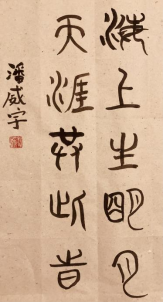 海上生明月
天涯共此旹
潘威宇